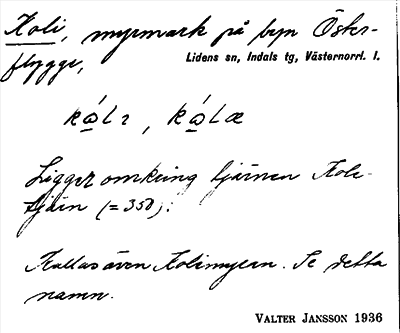 Koli, myrmark på byn Öster-
flygge,
Lidens sn, Indals tg, Västernorrl. l.
kɷ́lɩ, kɷ́læ
Ligger omkring tjärnen Kole-
tjärn (= 350).
Kallas även Kolimyren. Se detta
namn.
VALTER JANSSON 1936